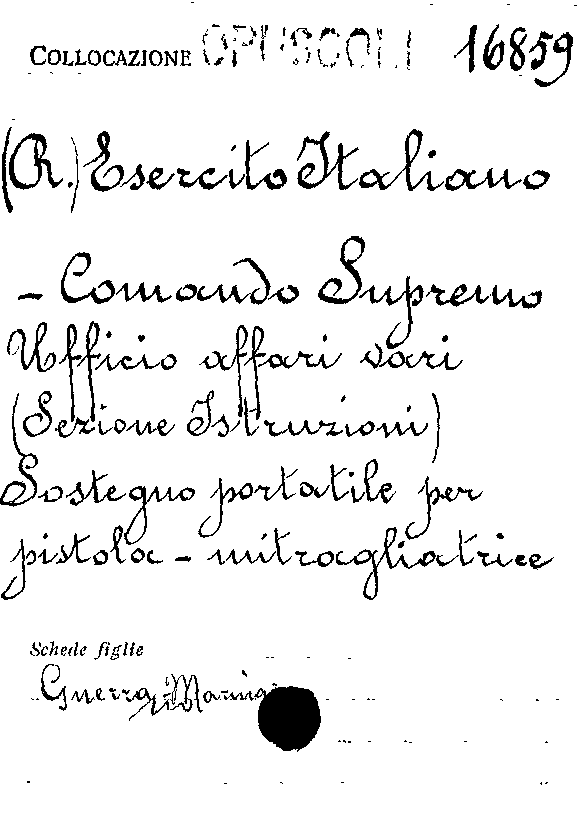 COLLOCAZIONE OPUSCOLI 16859
(R.) Esercito Italiano
- Comando Supremo
Ufficio affari vari
(Sezione Istruzioni)
Sostegno portatile per
pistola - mitragliatrice
Schede figlie
Guerra, Marina